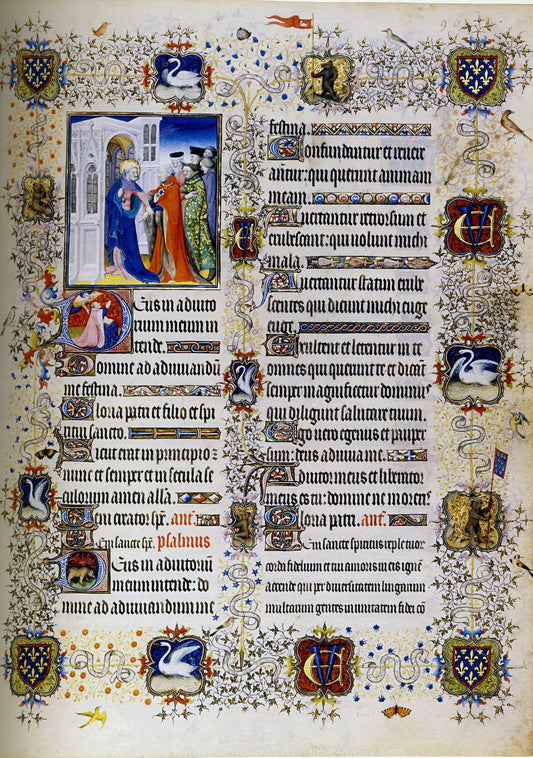 Deus in adiuto
rium meum in
tende. 
Domine ad adiuuandū
me festina.
Gloria patri et filio et spi
ritui sancto.
Sicut erat in principio z
nunc et semper et in secula se
culorum amen allā.
Ueni creator sp̄c. añt.
Ueni sancte sp̄c. psalmus
Deus in adiutoriū
meum intende: do
mine ad adiuuandum me
festina.
Confundantur et reuer
antur: qui querunt animam
meam.
Auertantur retrorsum et
erubescant: qui uolunt michi
mala.
Auertantur statim erube
scentes qui dicunt michi euge
euge.
Exultent et letentur in te
omnes qui querunt te et dicāt
semper magnificetur dominus
qui diligunt salutare tuum.
Ego uero egenus et pauper
sum: deus adiuua me.
Adiutor meus et liberator
meus es tu: domine ne moreris
Gloria patri. añt.
Ueni sancte spiritus reple tuor
corda fidelium et tui amoris in eis ignē
accende qui per diuersitatem linguarum
multarum gentes in unitatem fidei cō